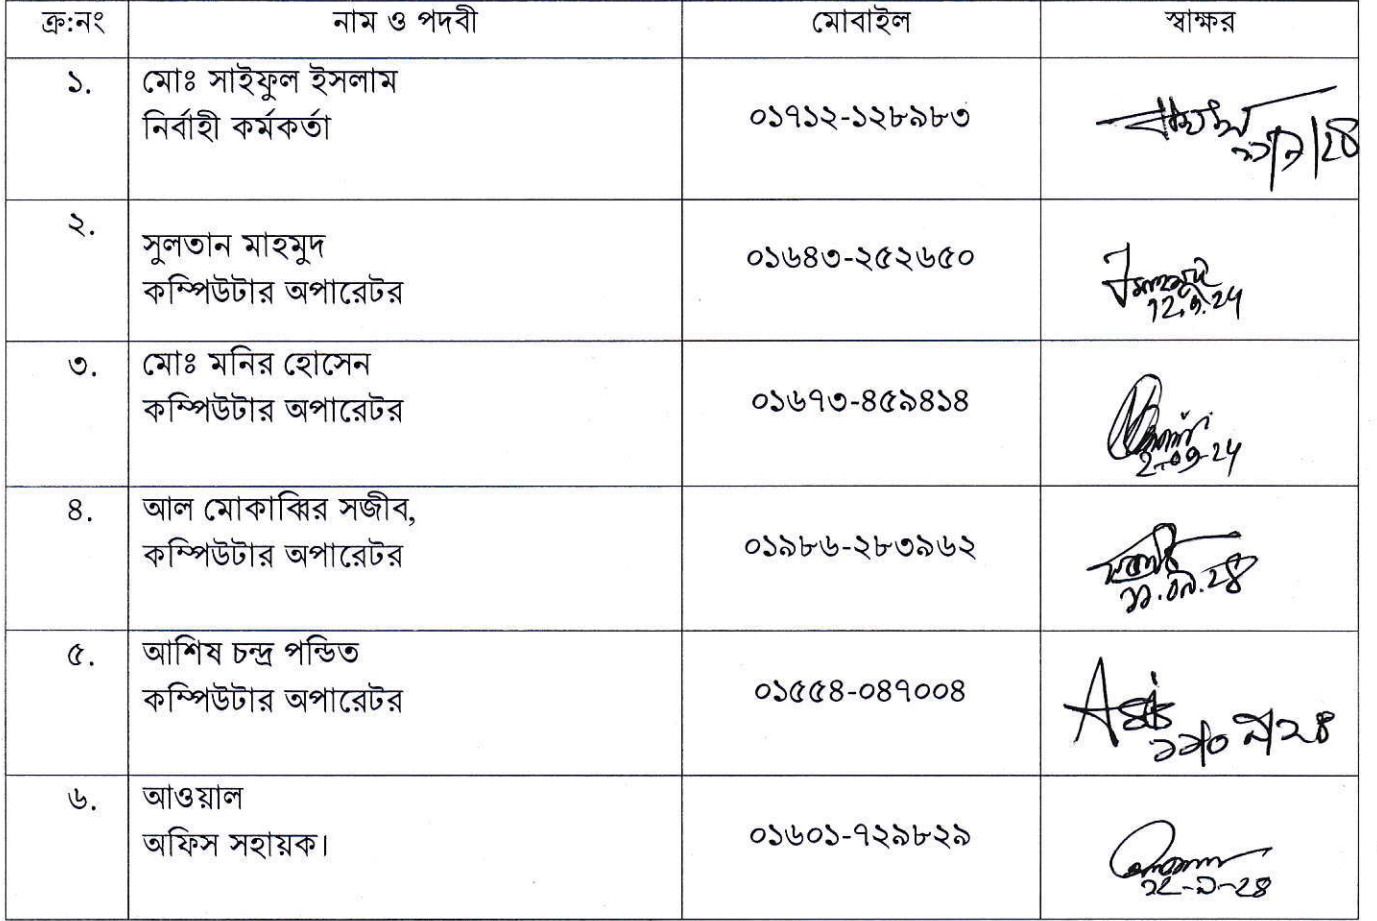 ক্র:নং নাম ও পদবী মোবাইল স্বাক্ষর
১. মোঃ সাইফুল ইসলাম
নির্বাহী কর্মকর্তা
০১৭১২-১২৮৯৮৩
২.
সুলতান মাহমুদ
কম্পিউটার অপারেটর
০১৬৪৩-২৫২৬৫০
৩. মোঃ মনির হোসেন
কম্পিউটার অপারেটর
০১৬৭৩-৪৫৯৪১৪
৪. আল মোকাব্বির সজীব,
কম্পিউটার অপারেটর
০১৯৮৬-২৮৩৯৬২
১১.০৯.২৪
৫. আশিষ চন্দ্র পন্ডিত
কম্পিউটার অপারেটর
০১৫৫৪-০৪৭০০৪
৬. আওয়াল
অফিস সহায়ক।
০১৬০১-৭২৯৮২৯